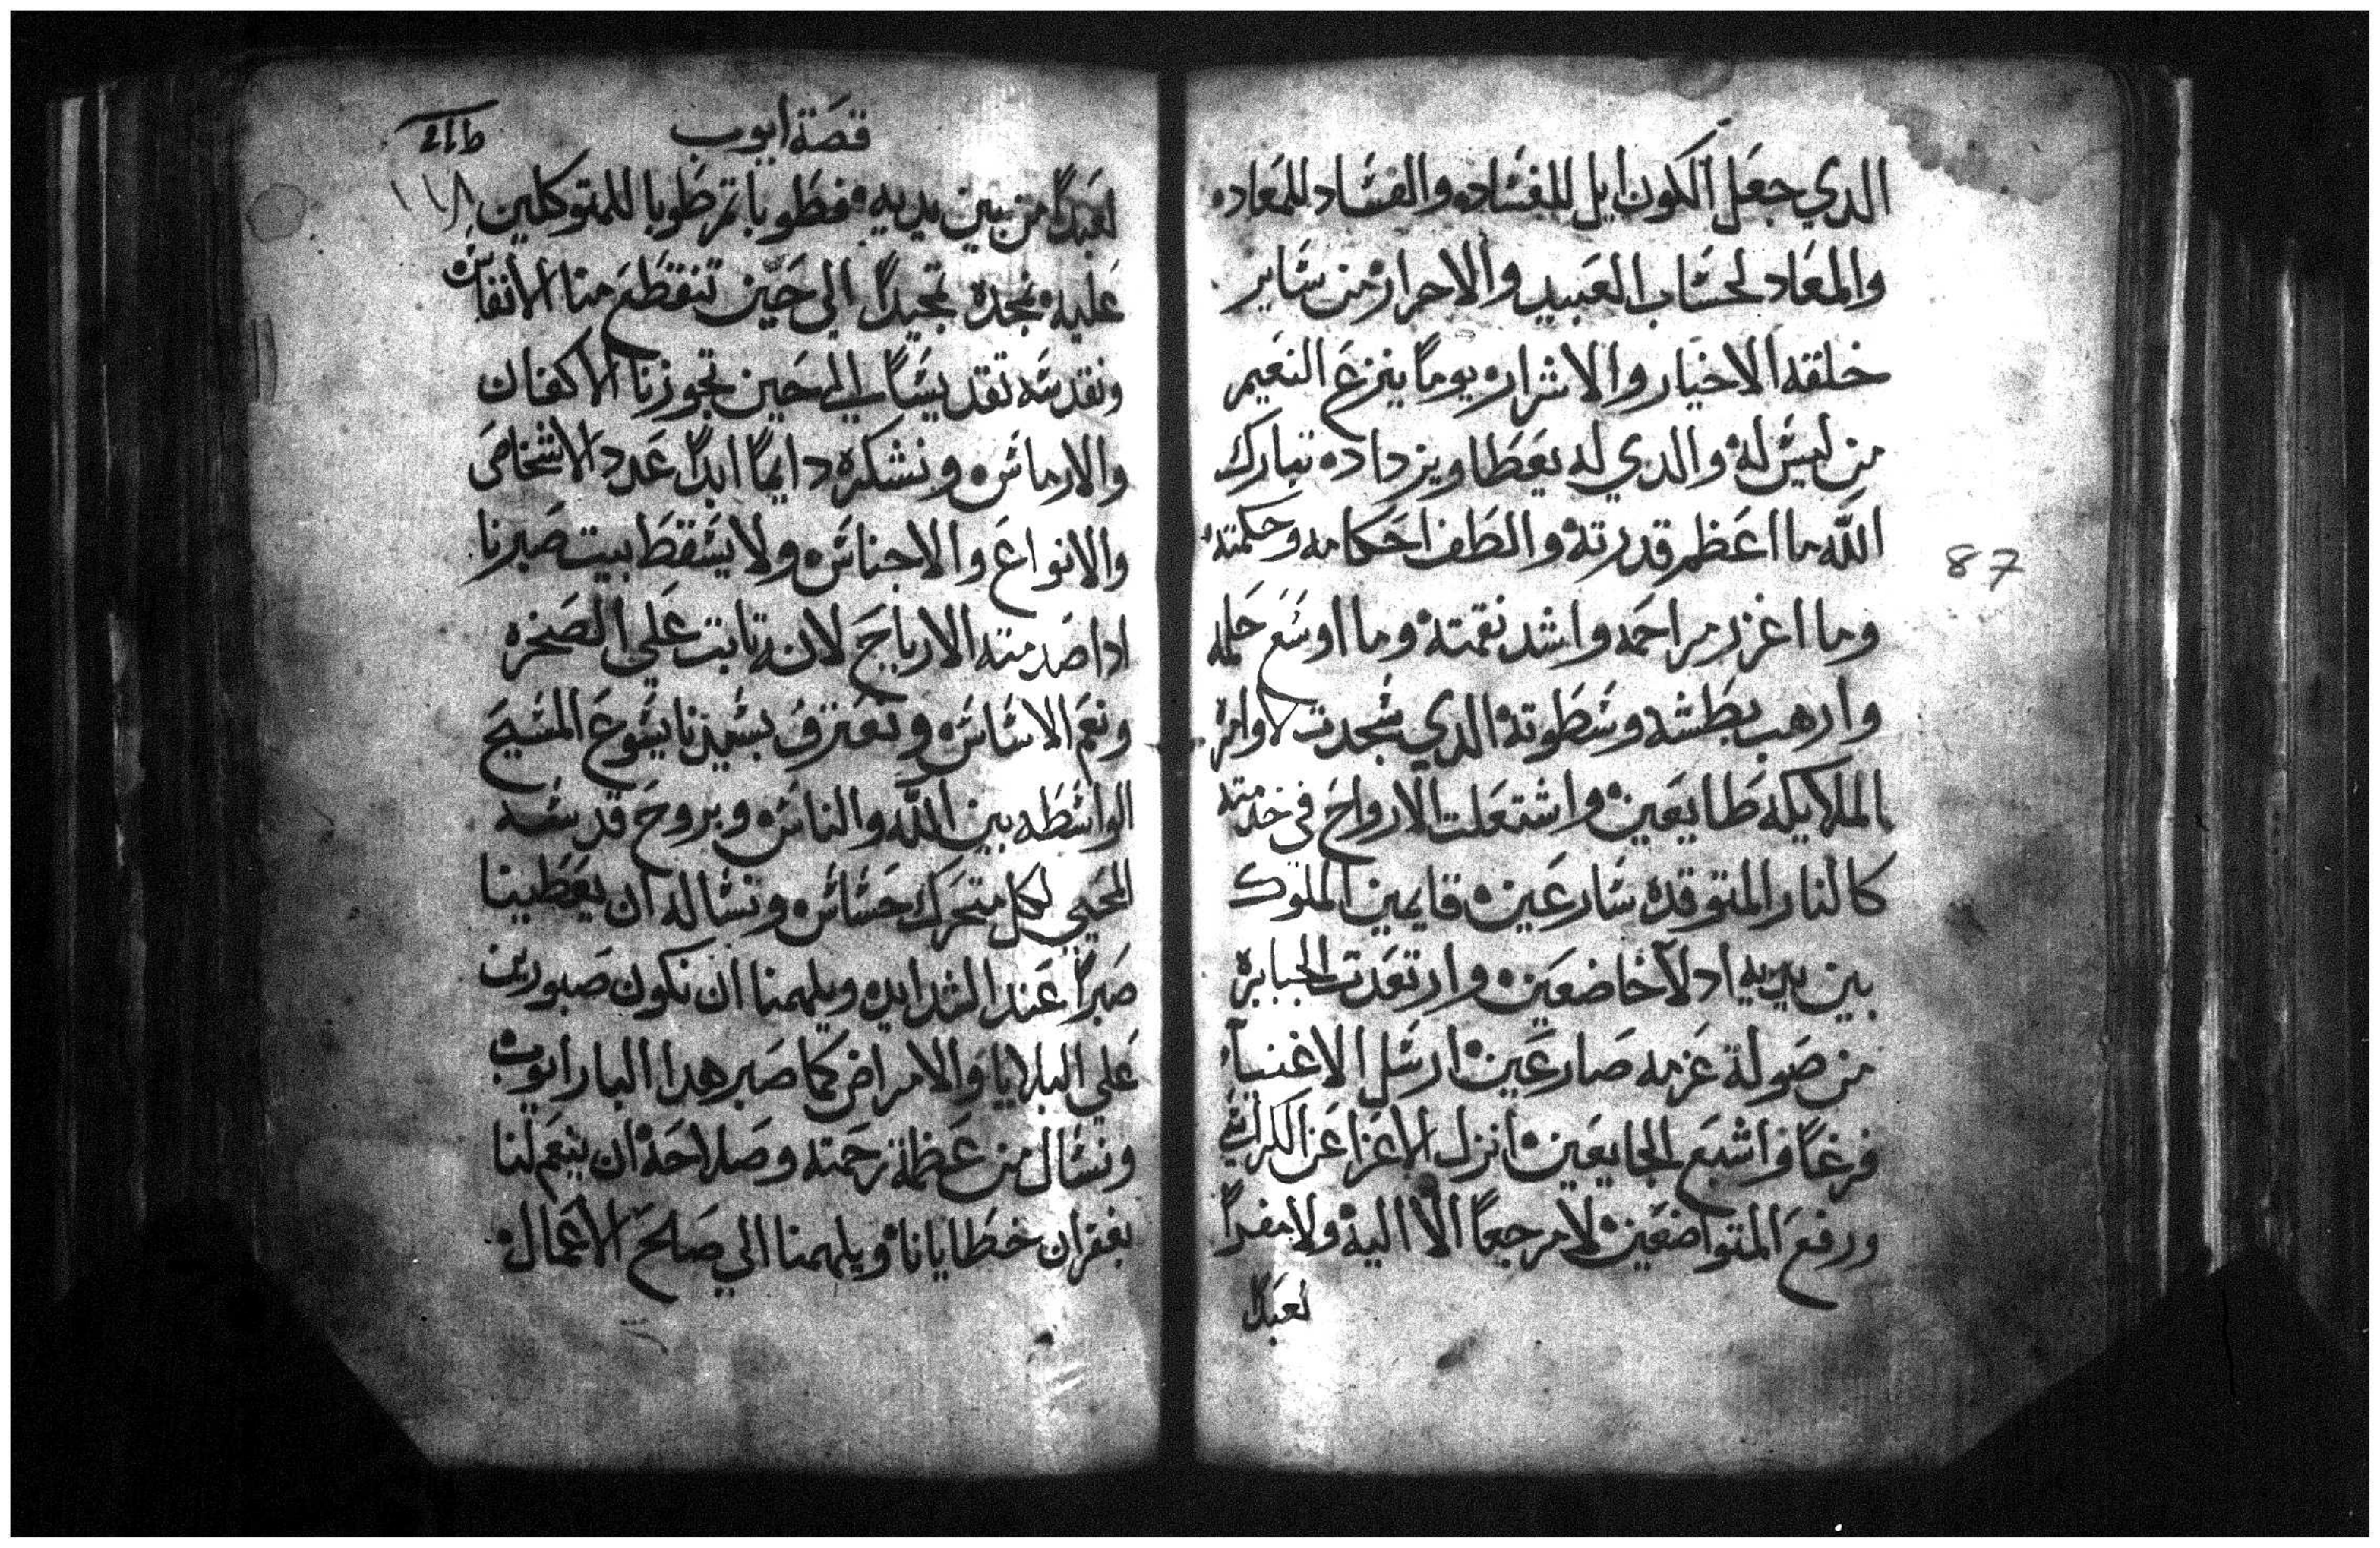 الدي جعل الكون ايل للفساده والفساد للمعاده
والمعاد لحساب العبيد والاحرار من ساير
خلقه الاخيار والاشرار يوما ينزع النعيم
من ليس له والدي له يعطا ويزداده تبارك
الله ما اعظم قدرته والطف احكامه وحكمته
وما اغزر مراحمه واشد نقمته وما اوسع حلمه
وارهب بطشه وسطوته الدي سجدت لاوامره
الملايكه طايعين واشتعلت الارواح في خدمته
كالنار المتوقده سارعين قايمين الملوك
بين يديه ادلا خاضعين وارتعدت الجبابره
من صولة عزمه صارعين ارسل الاغنياء
فرغا واشبع الجايعين انزل الاعزا عن الكراسي
ورفع المتواضعين لا مرجعا الا اليه ولا مفرا
لعبدا
87
قصة ايوب
١١٨
لعبدا من بين يديه فطوبا ثم طوبا للمتوكلين
عليه نمجده تمجيدا الي حين تنقطع منا الانفاس
ونقدسه تقديسا الي حين تجوزنا الاكفان
والارماس ونشكره دايما ابدا عدد الاشخاص
والانواع والاجناس ولا يسقط بيت صبرنا
ادا صدمته الارياح لانه تابت علي الصخره
ونعم الاساس ونعترف بسيدنا يسوع المسيح
الواسطه بين الله والناس وبروح قدسه
المحيي لكل متحرك حساس ونساله ان يعطينا
صبرا عند الشدايد ويلهمنا ان نكون صبورين
علي البلايا والامراض كما صبر هدا البار ايوب
ونسال من عظمة رحمته وصلاحه ان ينعم لنا
بغفران خطايانا ويلهمنا الي صلح الاعمال